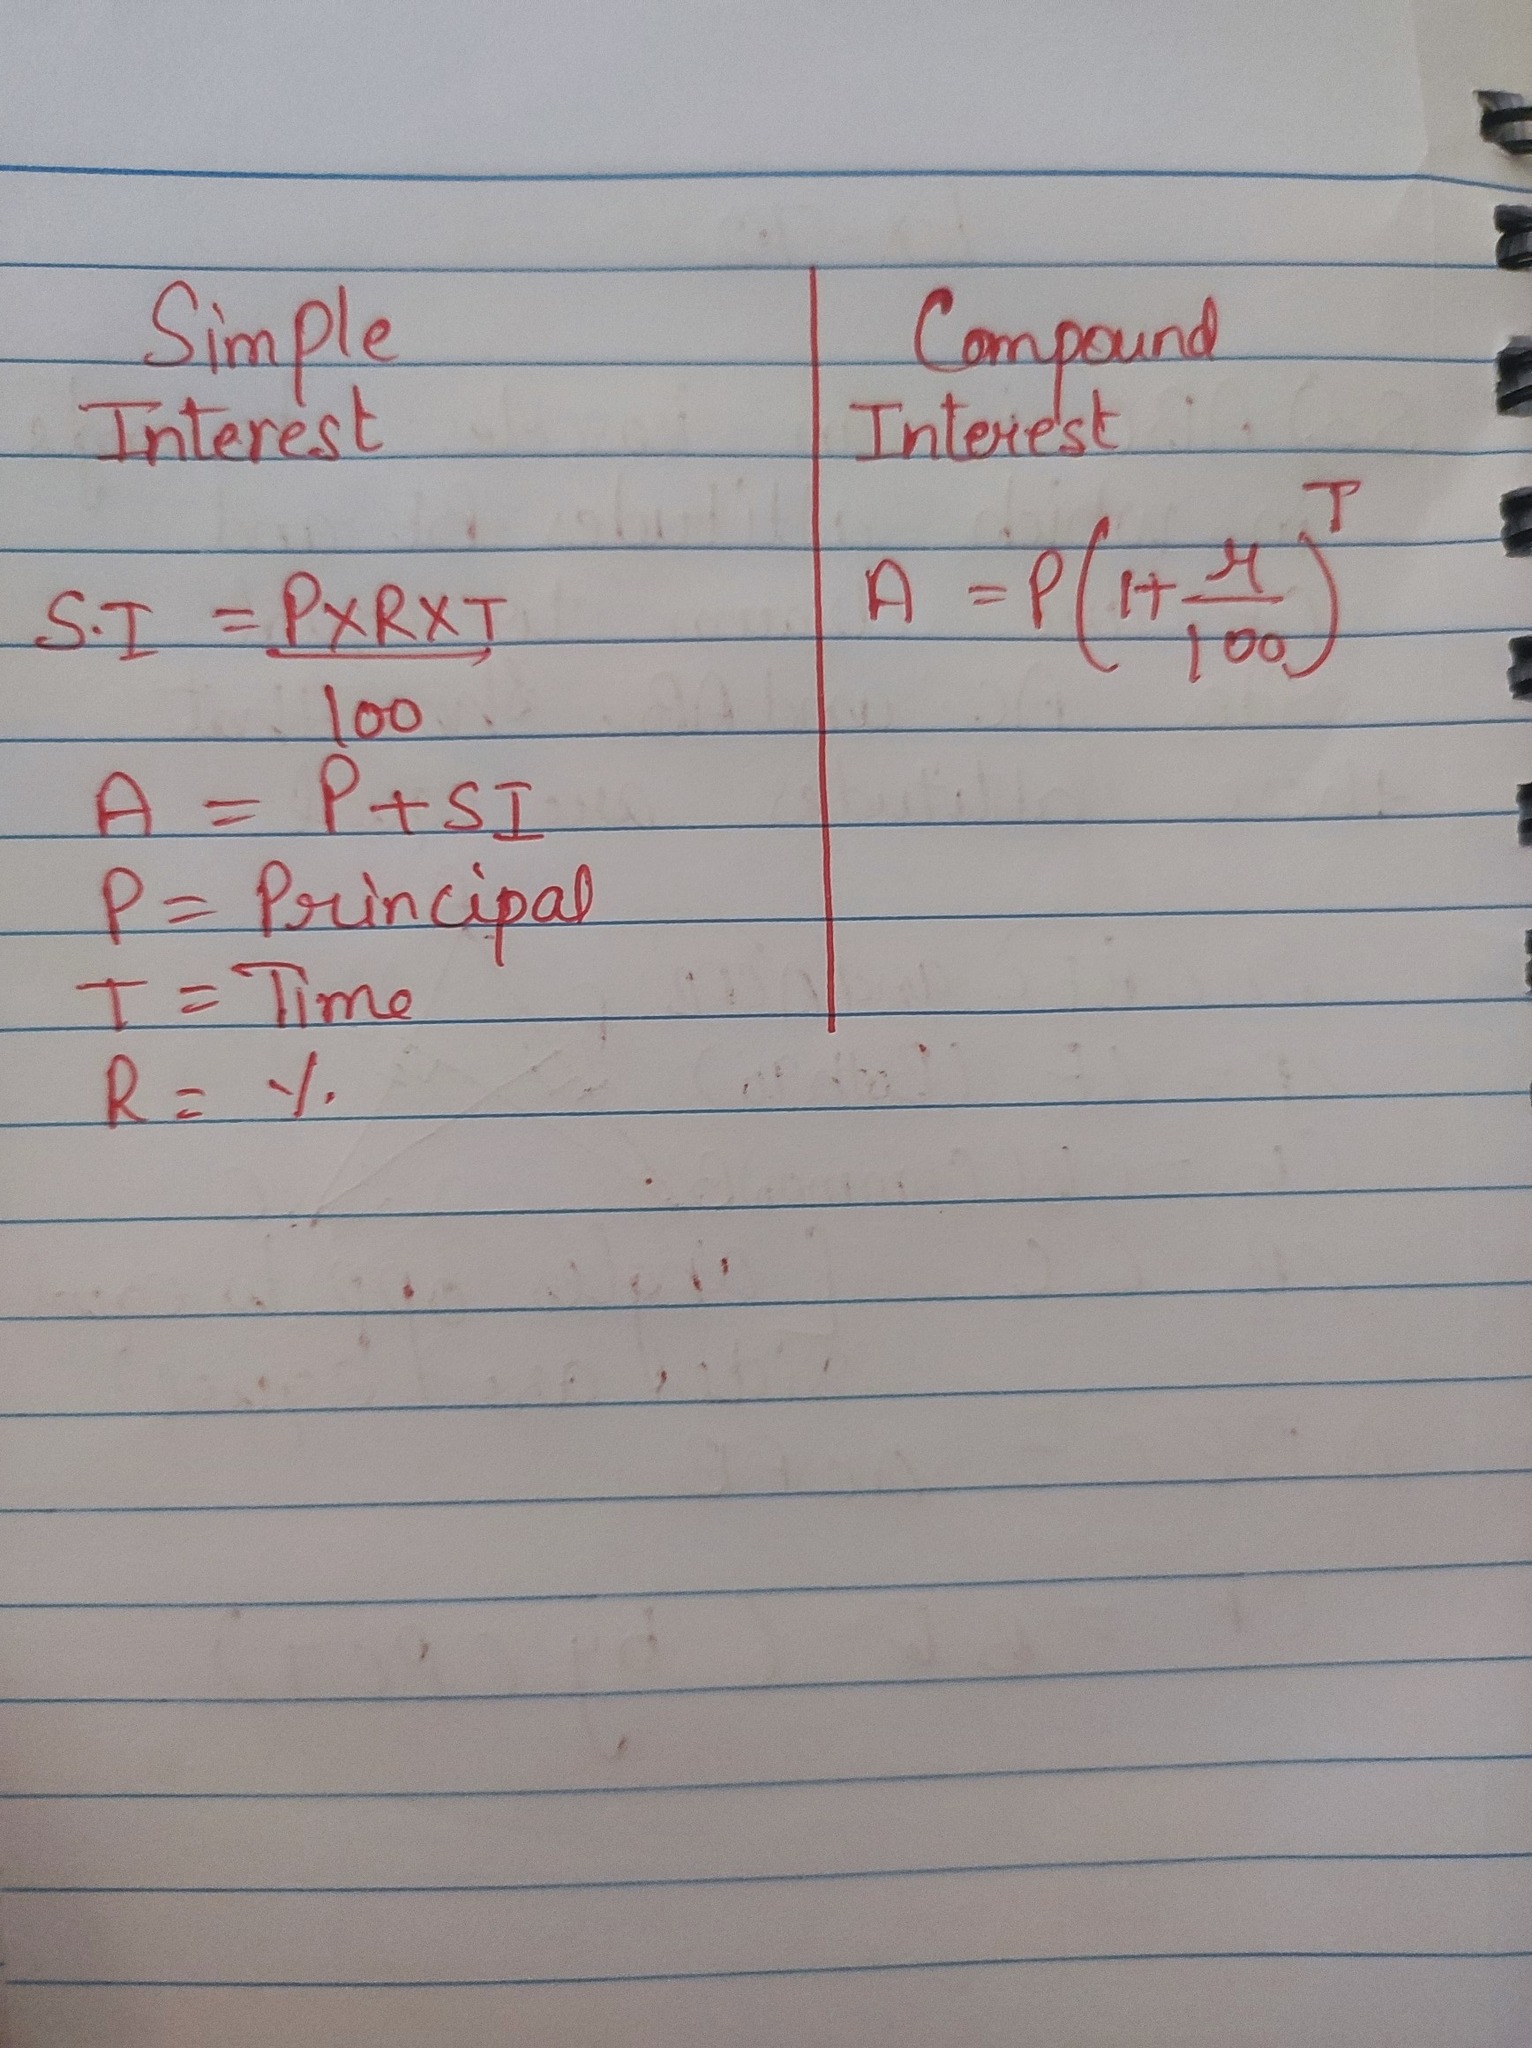 Simple
Interest
S.I = PXRXT
100
A = P+SI
P = Principal
T = Time
R = %
Compound
Interest
A = P(1+r/100)^T